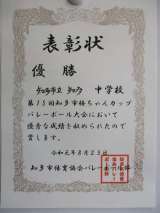 表彰状
優勝
知多市立 知多 中学校
第15回知多市梅ちゃんカップ
バレーボール大会において
優秀な成績を収められたので
賞します。
令和元年8月25日
知多市体育協会バレーボール部